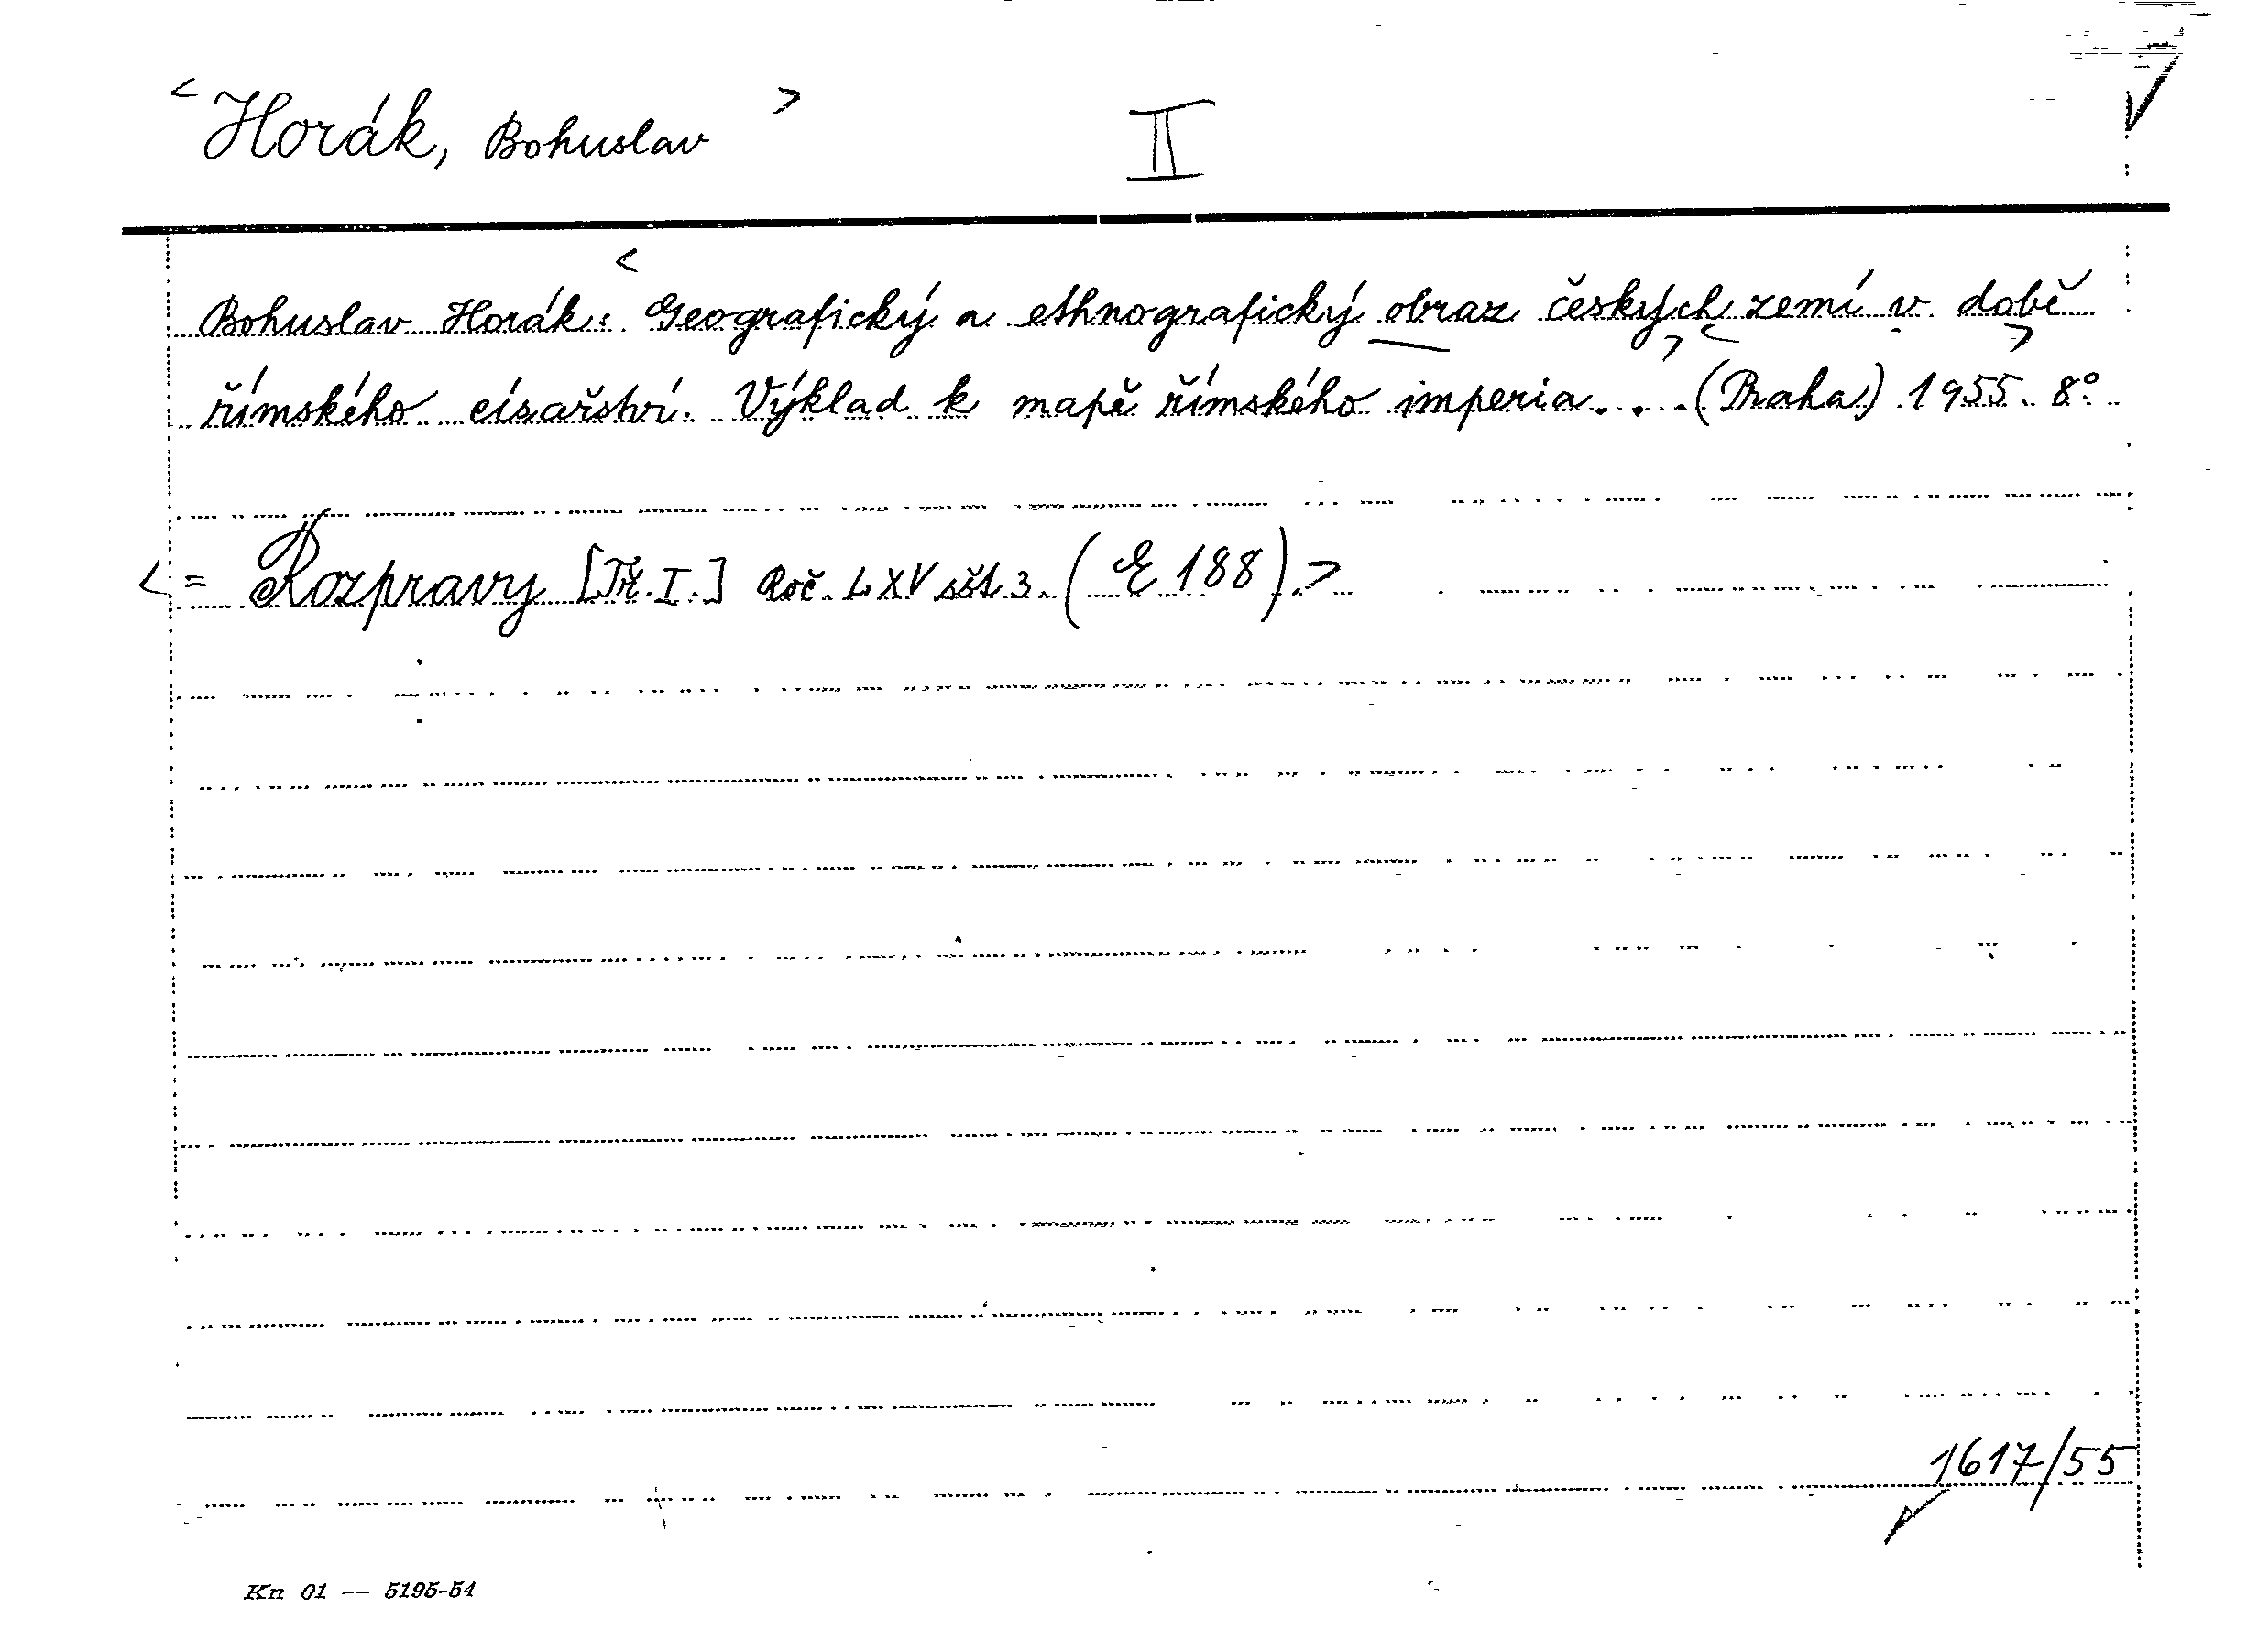 < Horák, Bohuslav > II
Bohuslav Horák: < Geografický a ethnografický obraz českých zemí v době
římského císařství. Výklad k mapě > < římského imperia... > (Praha) 1955. 8°.
< = Rozpravy [Tř. I.] Roč. LXV sšt. 3. (E 188) >
1617/55
Kn 01 -- 5195-54